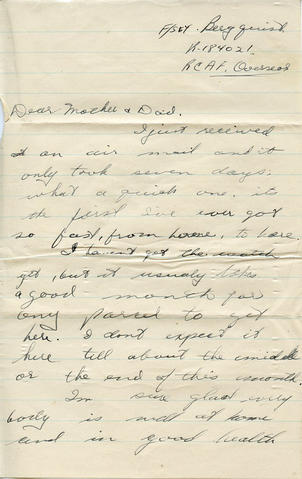 F/Sgt. Bergquist.
R-184021.
RCAF. Overseas
Dear Mother & Dad.
I just received
an air mail and it
only took seven days;
what a quick one. its
the first I've ever got
so fast, from home, to here.
I havent got the watch
yet, but it usually takes
a good month for
any parcel to get
here. I dont expect it
here till about the middle
or the end of this month.
I'm sure glad every
body is well at home
and in good health